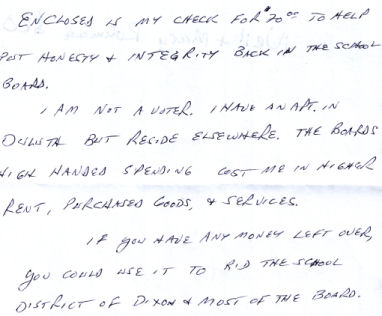 ENCLOSED IS MY CHECK FOR $20.00 TO HELP
PUT HONESTY & INTEGRITY BACK IN THE SCHOOL
BOARD.
I AM NOT A VOTER. I HAVE AN APT. IN
DULUTH BUT RESIDE ELSEWHERE. THE BOARDS
HIGH HANDED SPENDING COST ME IN HIGHER
RENT, PURCHASED GOODS, & SERVICES.
IF YOU HAVE ANY MONEY LEFT OVER,
YOU COULD USE IT TO RID THE SCHOOL
DISTRICT OF DIXON & MOST OF THE BOARD.